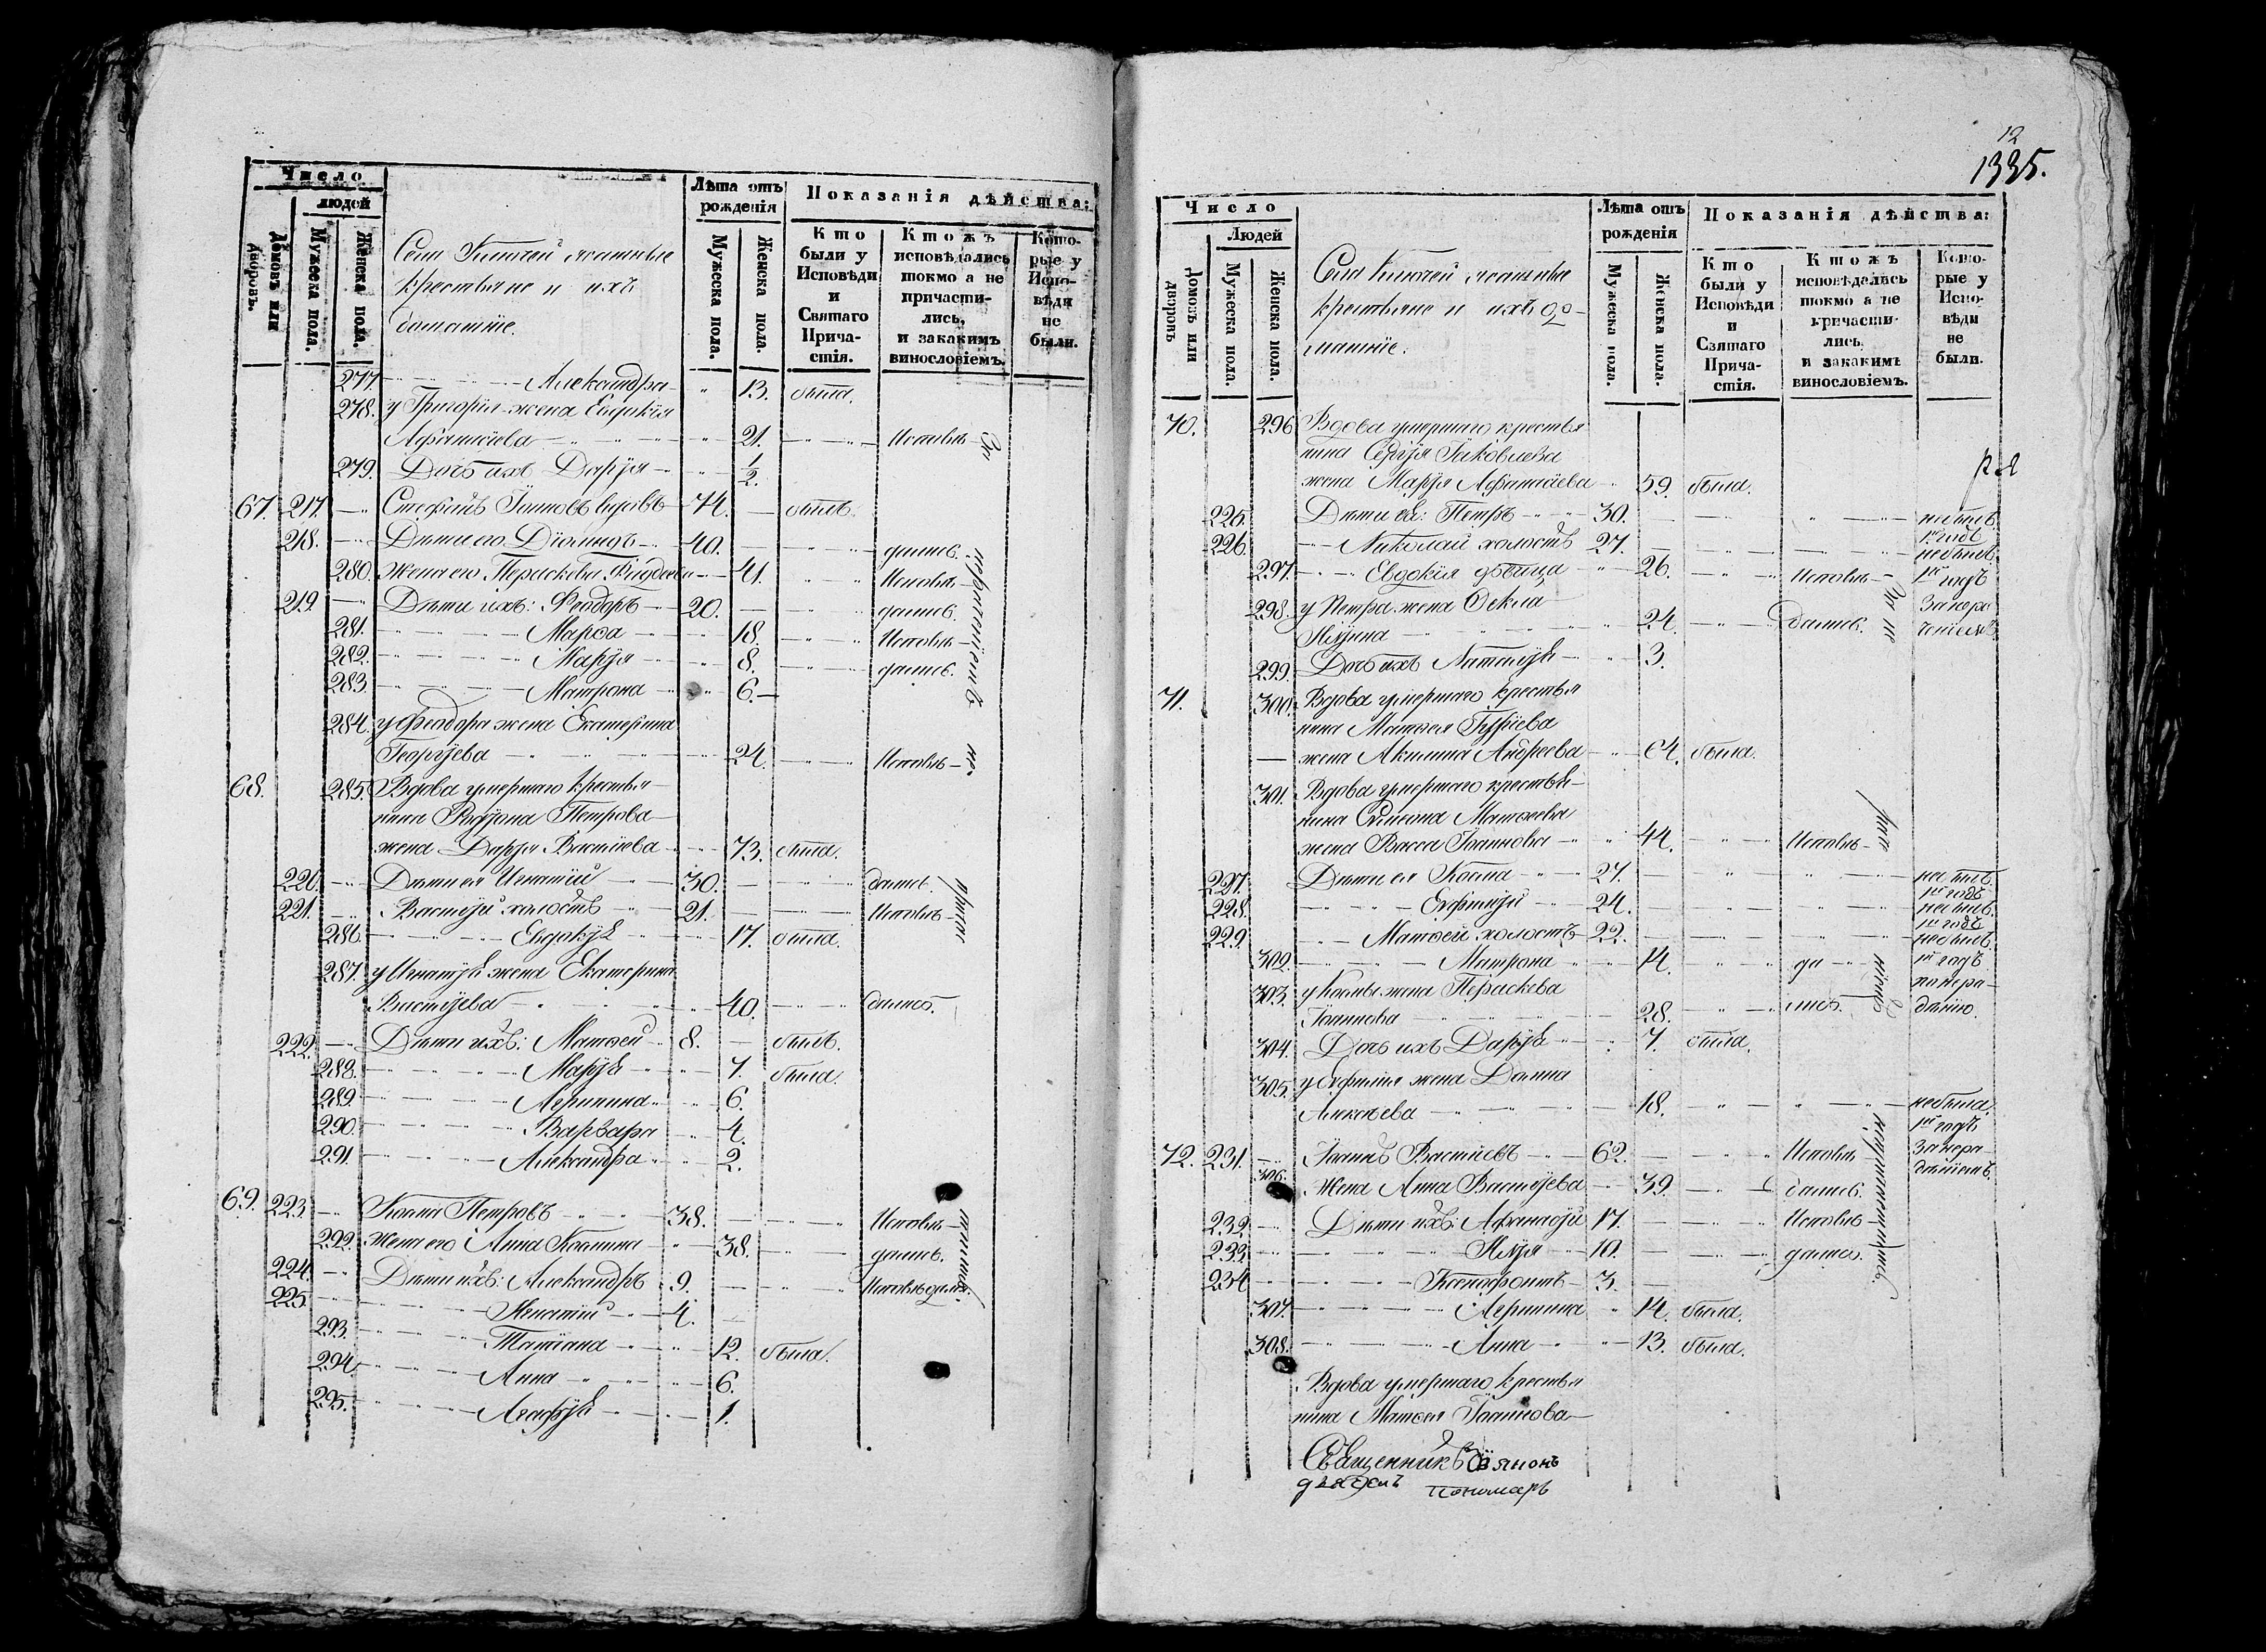 Число
людей
Домовъ или дворовъ.
Мужеска пола.
Женска пола.
крестьяне и ихъ
домашніе.
Лѣта отъ рожденія
Мужеска пола.
Женска пола.
Показанія дѣйства:
Кто были у Исповѣди и Святаго Прича-стія.
Ктожъ исповѣдались токмо а не причасти-лись, и закакимъ винословіемъ.
Кото-рые у Испо-вѣди не были.
277. Александра 13. была.
278. у Григорія жена Евдокія
Афанасіева 21. Исповѣ-
279. Дочь ихъ Дарія 1/2.
67. 217. Стефанъ Іоанновъ вдовъ 74. былъ.
218. Дѣти его Діомидъ 40. дались.
280. Жена его Параскева 41. Исповѣ-
219. Дѣти ихъ: Ѳеодоръ 20. дались.
281. Марѳа 18. Исповѣ-
282. Марія 8. дались.
283. Матрона 6.
284. у Ѳеодора жена Екатерина
Георгіева 24. Исповѣ-
68. 285. Вдова умершаго крестья-
нина Родіона Петрова
жена Дарія Васильева 73. была.
220. Дѣти ея Игнатій 30. дались.
221. Василій холостъ 21. Исповѣ-
286. Евдокія 17. была.
287. у Игнатія жена Екатерина
Васильева 40. дались.
222. Дѣти ихъ: Матѳей 8. былъ.
288. Марія 7. была.
289. Агрипина 6.
290. Варвара 4.
291. Александра 2.
69. 223. Косма Петровъ 38. Исповѣ-
292. Жена его Анна Космина 38. дались.
224. Дѣти ихъ: Александръ 9. Исповѣдались.
225. 4.
293. Татіана 12. была.
294. Анна 6.
295. Агафія 1.
12
1335.
Число
Людей
Домовъ или дворовъ
Мужеска пола.
Женска пола.
крестьяне и ихъ до-
машніе.
Лѣта отъ рожденія
Мужеска пола.
Женска пола.
Показанія дѣйства:
Кто были у Исповѣди и Святаго Прича-стія.
Ктожъ исповѣдались токмо а не причасти-лись, и закакимъ винословіемъ.
Кото-рые у Испо-вѣди не были.
70. 296. Вдова умершаго крестья
нина Сергія Іаковлева
жена Марія Афанасіева 59. была.
225. Дѣти ея: Петръ 30. небылъ.
226. Николай холостъ 27. небылъ.
297. Евдокія дѣвица 26. Исповѣ-
298. у Петра жена Ѳекла
Иліина 24. дались.
299. Дочь ихъ Наталія 3.
71. 300. Вдова умершаго крестья
нина Матѳея
жена Акилина Андреева 64. была.
301. Вдова умершаго крестья-
нина Симеона Матѳеева
жена Васса Іоаннова 44. Исповѣ-
227. Дѣти ея Косма 27. небылъ.
228. Евфимій 24. небылъ.
229. Матѳей холостъ 22. небылъ.
302. Матрона 14. да
303. у Космы жена Параскева
Іоаннова 28. лись.
304. Дочь ихъ Дарія 7. была.
305. у Евфимія жена Домна
Алексѣева 18. небыла.
72. 231. Іоаннъ Васильевъ 62. Исповѣ-
306. Жена Анна Васильева 39. дались.
232. Дѣти ихъ: Афанасій 17. Исповѣ-
233. Илія 10. дались.
234. Ксенофонтъ 3.
307. Агрипина 14. была.
308. Анна 13. была.
Вдова умершаго крестья
нина Матѳея Іоаннова
Священникъ
пономарь